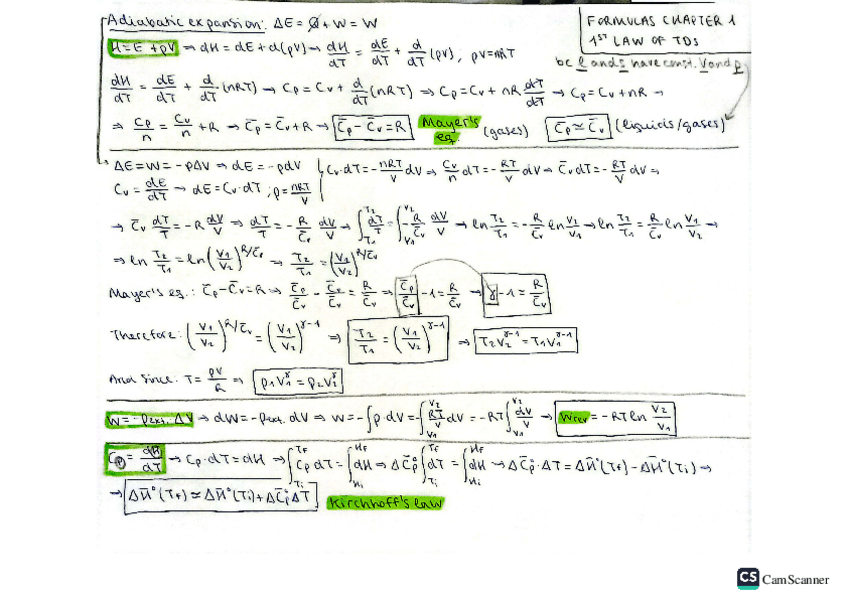 Adiabatic expansion: ΔE = Q + W = W
FORMULAS CHAPTER 1
1ST LAW OF TDS
H = E + pV ⇒ dH = dE + d(pV) → dH/dT = dE/dT + d/dT (pV), pV = nRT
bc l and s have const. V and p
dH/dT = dE/dT + d/dT (nRT) → Cp = Cv + d/dT (nRT) → Cp = Cv + nR dT/dT → Cp = Cv + nR →
⇒ Cp/n = Cv/n + R → C̄p = C̄v + R → C̄p - C̄v = R Mayer's eq (gases) C̄p ≃ C̄v (liquids/gases)
ΔE = W = -pΔV ⇒ dE = -pdV
Cv = dE/dT → dE = Cv·dT ; p = nRT/V
Cv·dT = -nRT/V dV ⇒ Cv/n dT = -RT/V dV ⇒ C̄v dT = -RT/V dV ⇒
→ C̄v dT/T = -R dV/V ⇒ dT/T = -R/C̄v dV/V → ∫T1^T2 dT/T = ∫V1^V2 -R/C̄v dV/V → ln T2/T1 = -R/C̄v ln V2/V1 → ln T2/T1 = R/C̄v ln V1/V2 →
⇒ ln T2/T1 = ln (V1/V2)^R/C̄v ⇒ T2/T1 = (V1/V2)^R/C̄v
Mayer's eq.: C̄p - C̄v = R ⇒ C̄p/C̄v - C̄v/C̄v = R/C̄v ⇒ C̄p/C̄v - 1 = R/C̄v → γ - 1 = R/C̄v
Therefore: (V1/V2)^R/C̄v = (V1/V2)^γ-1 ⇒ T2/T1 = (V1/V2)^γ-1 ⇒ T2V2^γ-1 = T1V1^γ-1
And since: T = pV/R ⇒ p1V1^γ = p2V2^γ
W = -pext. ΔV → dW = -pext. dV ⇒ W = -∫p·dV = -∫V1^V2 RT/V dV = -RT ∫V1^V2 dV/V → Wrev = -RT ln V2/V1
Cp = dH/dT → Cp·dT = dH → ∫Ti^Tf Cp dT = ∫Hi^Hf dH ⇒ ΔC̄p° ∫Ti^Tf dT = ∫Hi^Hf dH → ΔC̄p°·ΔT = ΔH̄°(Tf) - ΔH̄°(Ti) →
→ ΔH̄°(Tf) ≃ ΔH̄°(Ti) + ΔC̄p°ΔT Kirchhoff's law
CS CamScanner